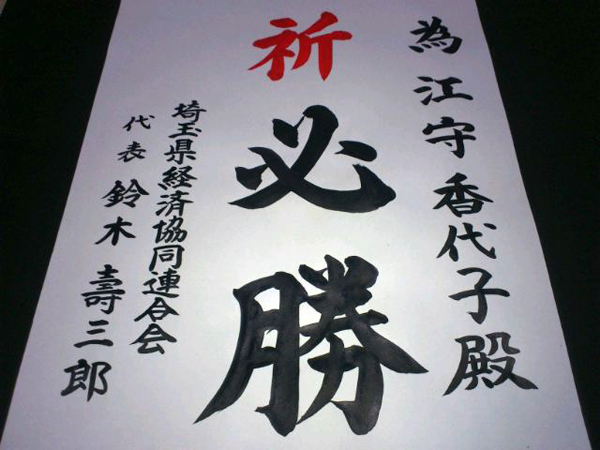 為江守香代子殿
祈必勝
埼玉県経済協同連合会
代表 鈴木壽三郎